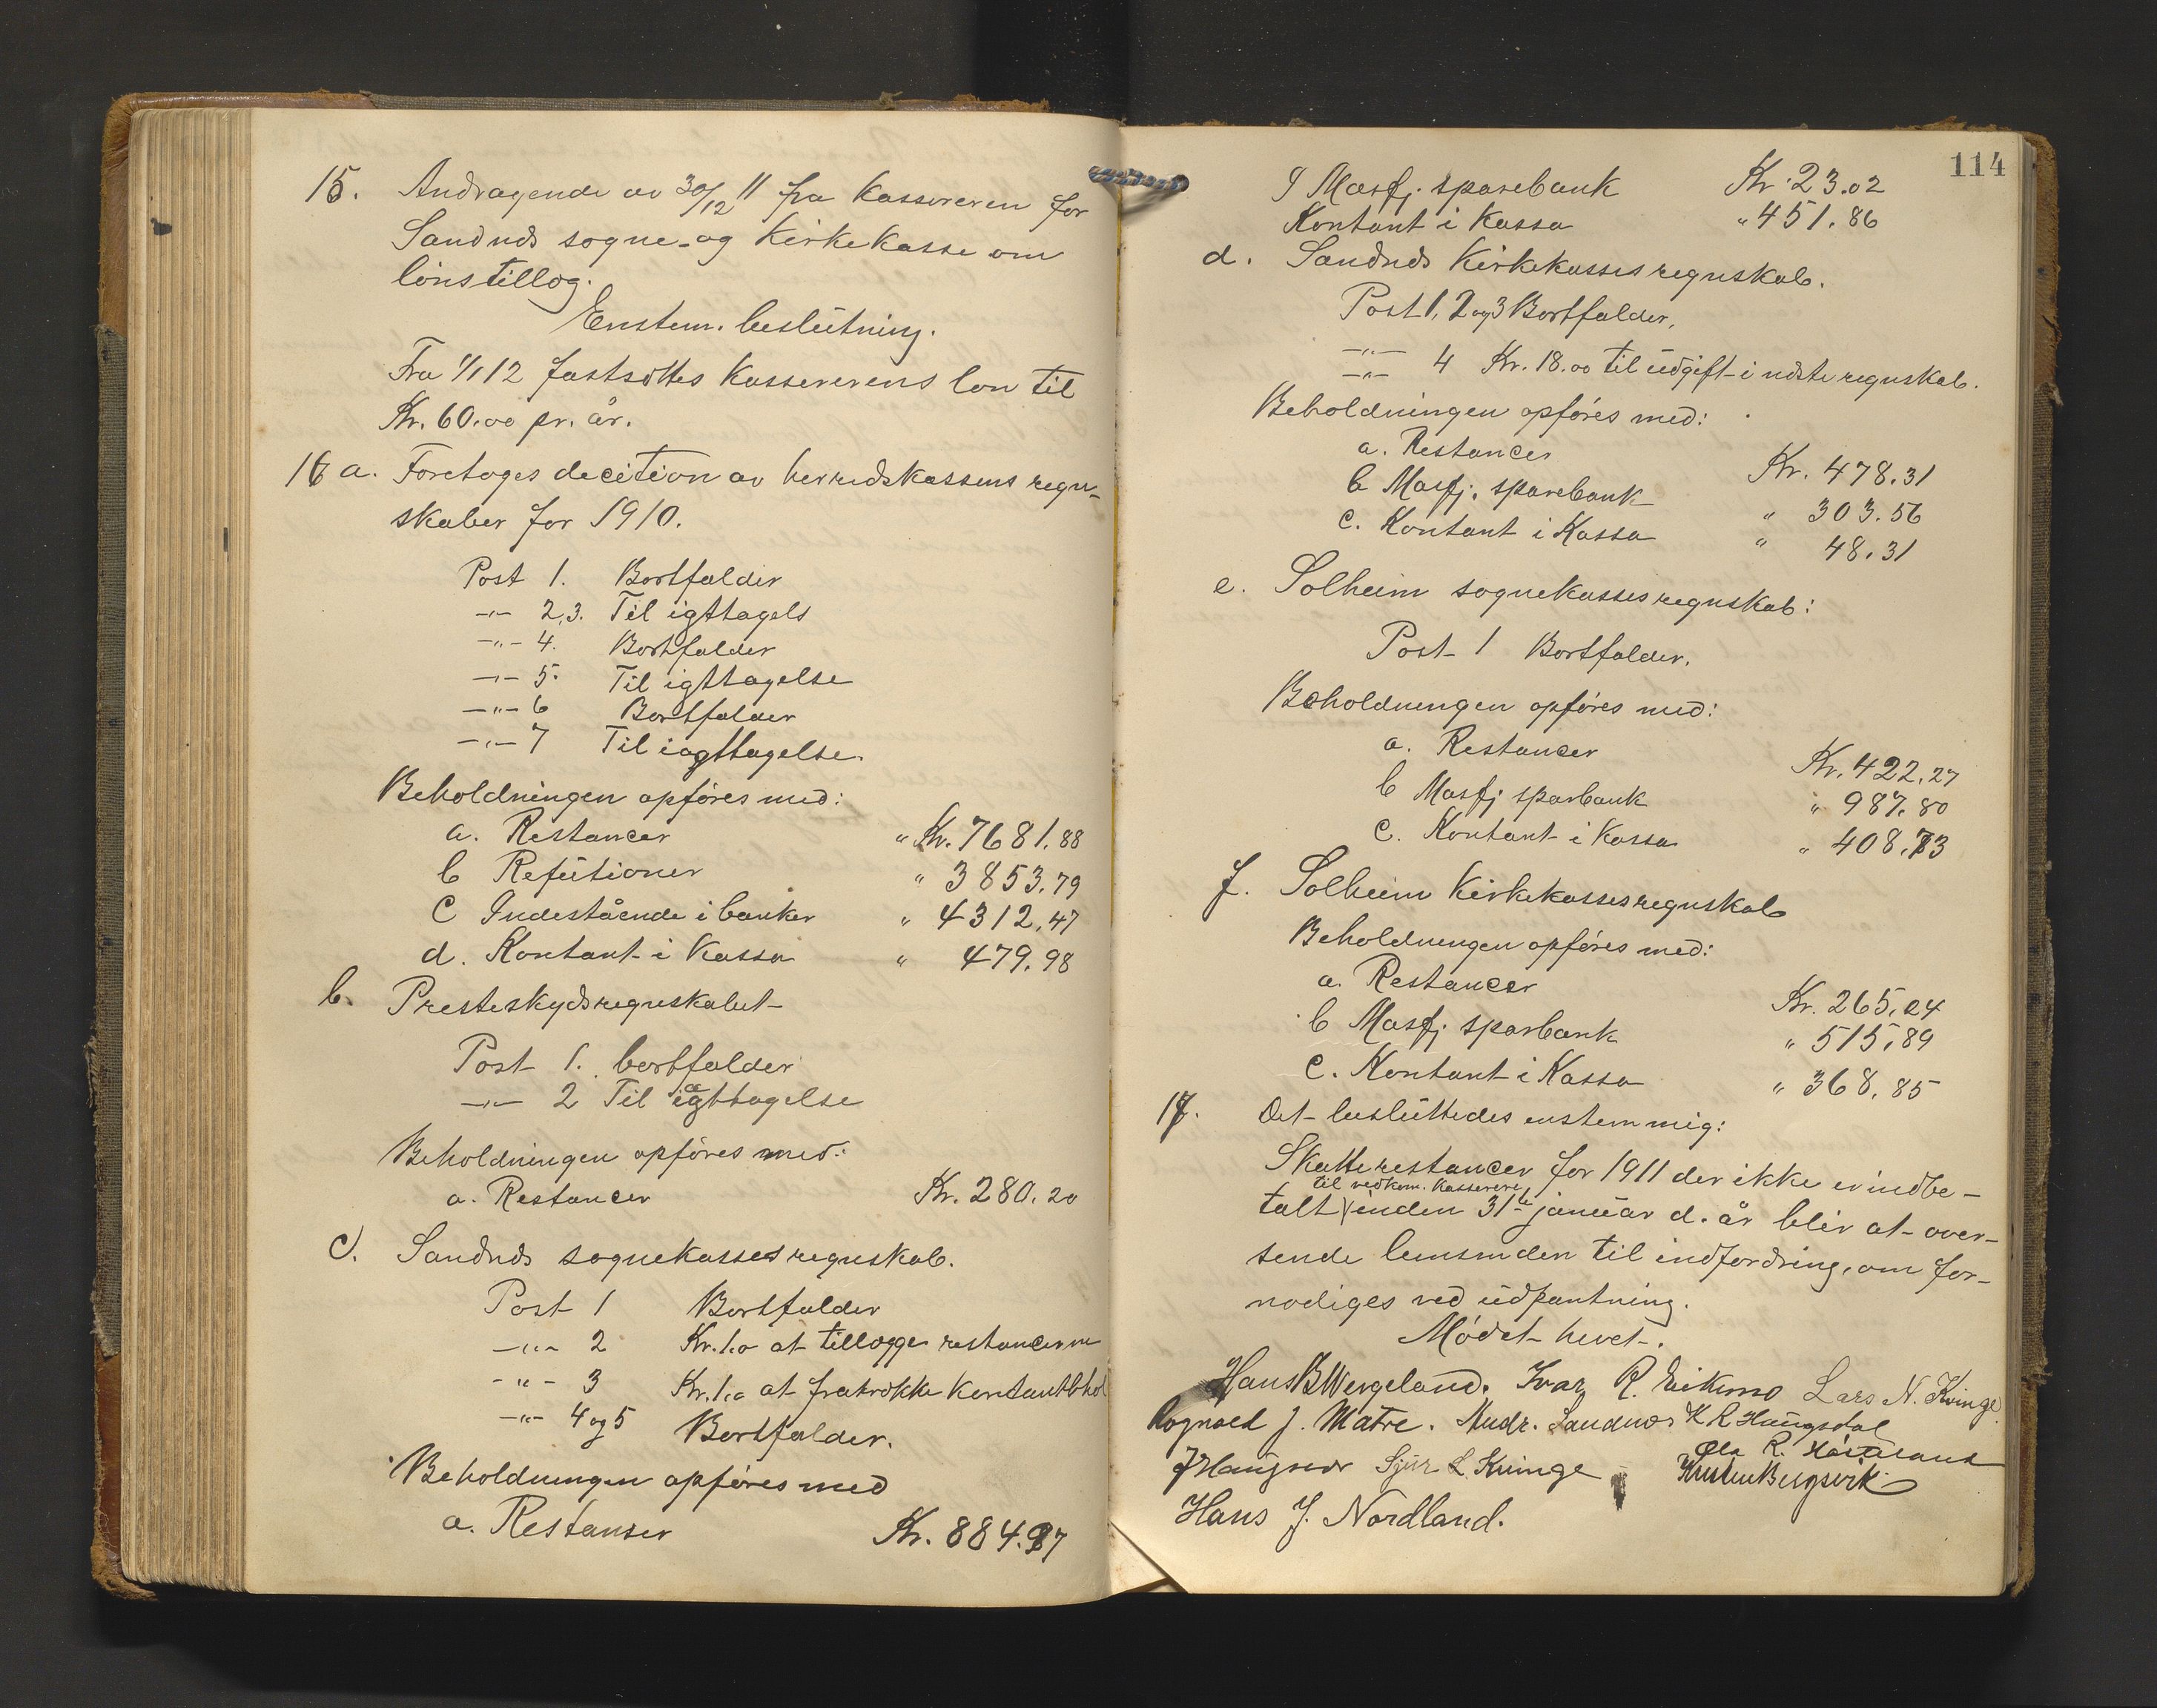 15. Andragende av 30/12 11 fra kassereren for
Sandnds sogne- og Kirkekasse om
lönstillæg.
Enstem. beslutning.
Fra 1/1 12 fastsættes Kassererens løn til
Kr. 60.00 pr. år.
16 a. Foretoges decition av herredskassens regn-
skaber for 1910.
Post 1. Bortfalder
-"- 2,3. Til igttagels
-"- 4. Bortfalder
-"- 5. Til igttagelse
-"- 6 Bortfalder
-"- 7 Til iagttagelse.
Beholdningen opföres med:
a. Restancer " Kr. 7681.88
b Refutioner " 3853.79
c Indestående i banker " 4312.47
d. Kontant i Kassa " 479.98
b. Presteskydsregnskabet
Post 1. bortfalder
-"- 2 Til iagttagelse
Beholdningen opföres med:
a. Restancer Kr. 280.20
c. Sandnds sognekasses regnskab.
Post 1 Bortfalder
-"- 2 Kr. 1.0 at tillægge restancerne
-"- 3 Kr. 1.0 at fratrække Kontantbhol
-"- 4 og 5 Bortfalder.
Beholdningen opföres med
a. Restanser Kr. 884.97
114
I Masfj. sparebank Kr. 23.02
Kontant i Kassa " 451.86
d. Sandnds Kirkekasses regnskab.
Post 1, 2 og 3 Bortfalder.
-"-
-"- 4 Kr. 18.00 til udgift i næste regnskab.
Beholdningen opföres med:
a. Restancer Kr. 478.31
b Masfj. sparebank " 303.56
c. Kontant i Kassa " 48.31
e. Solheim sognekasses regnskab:
Post 1 Bortfalder.
Beholdningen opföres med:
a. Restancer Kr. 422.27
b Masfj sparbank " 987.80
c. Kontant i Kassa " 408.73
f. Solheim Kirkekasses regnskab
Beholdningen opföres med:
a. Restancer Kr. 265.24
b Masfj. sparbank " 515.89
c. Kontant i Kassa " 368.85
17. Det besluttedes enstemmig:
Skatterestancer for 1911 der ikke er indbe-
til vedkom. Kasserere
talt inden 31te januar d. år blir at over-
sende lensmden til indfordring, om for-
nødiges ved udpantning.
Mödet hevet.
Hans B Wergeland. Ivar R. Eikemo Lars N. Kvinge
Rognald J. Matre. Andr. Sandnæs K R Haugsdal
Ola R. Hästeland
J Haugsvær Sjur L. Kvinge Kristen Bergsvik
Hans J. Nordland.